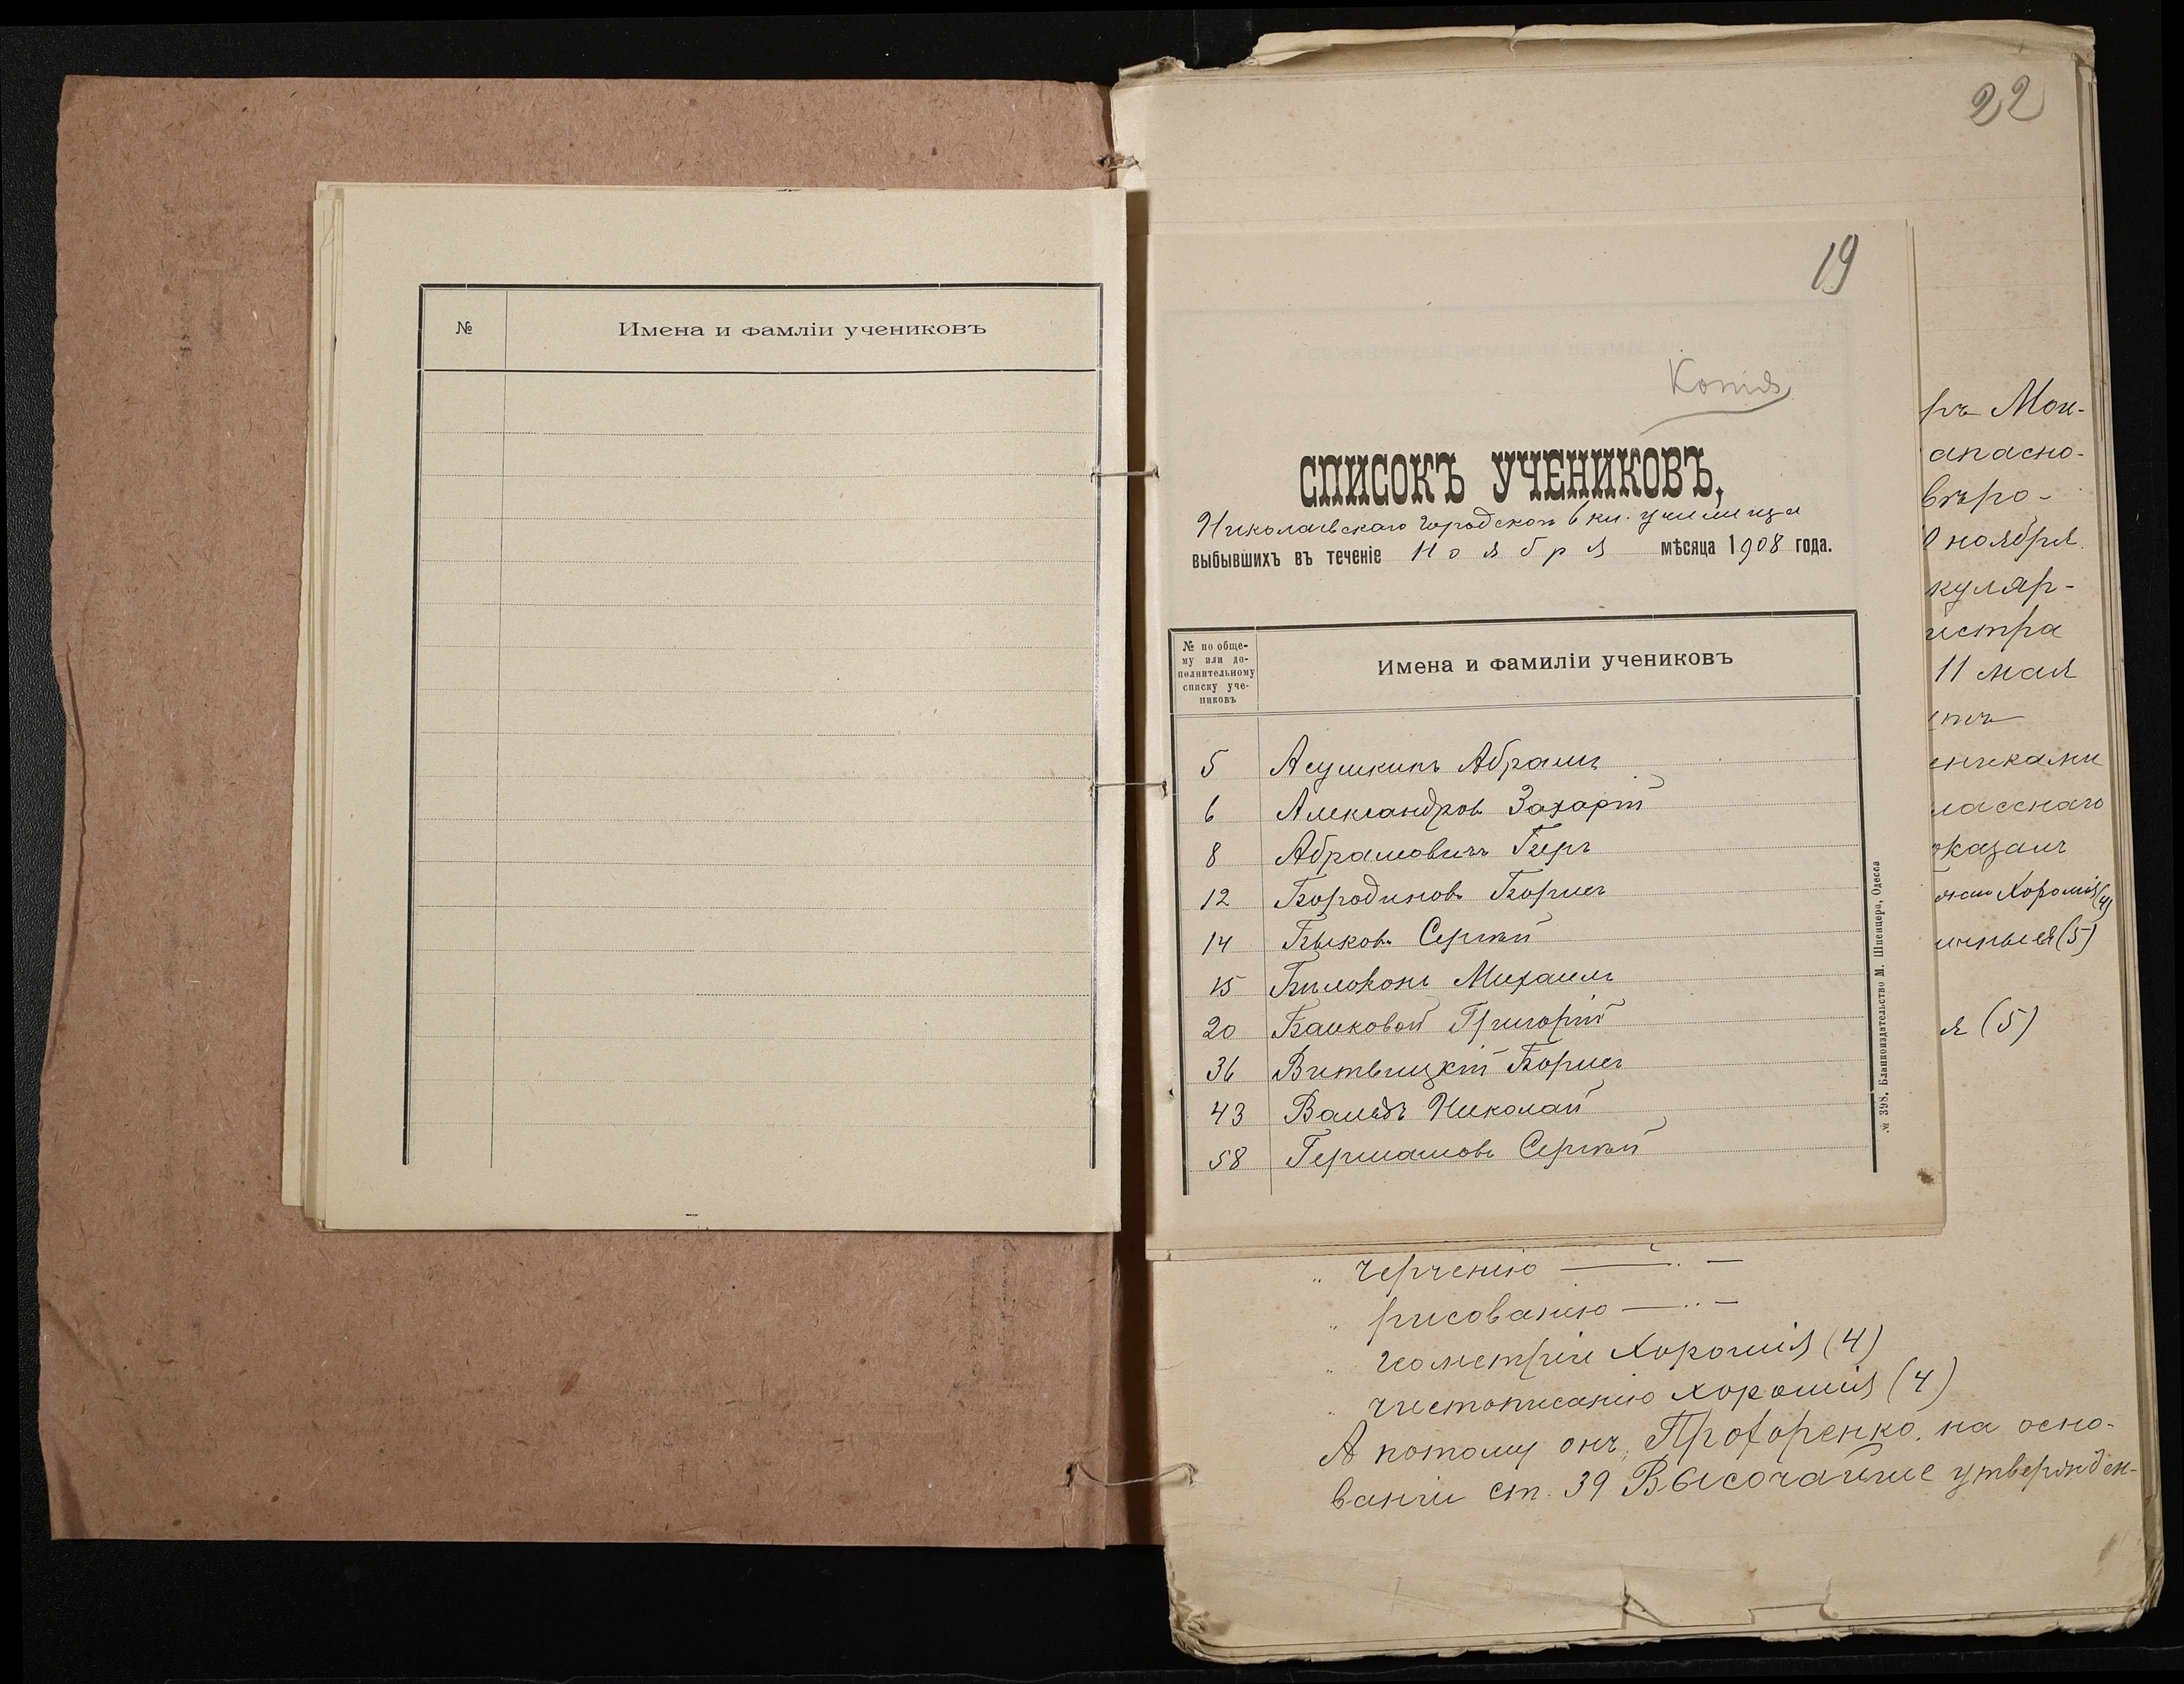 № Имена и фамліи учениковъ
22
19
Копія
СПИСОКЪ УЧЕНИКОВЪ,
Николаевскаго городского 6 кл. училища
выбывшихъ въ теченіе ноября мѣсяца 1908 года.
№ по обще-
му или до-
полнительному
списку уче-
никовъ
Имена и фамиліи учениковъ
5 Асушкинъ Абрамъ
6 Александровъ Захарій
8 Абрамовичъ Беръ
12 Бородиновъ Борисъ
14 Быковъ Сергѣй
15 Бѣлоконь Михаилъ
20 Банковой Григорій
36 Витвицкій Борисъ
43 Николай
58 Гермашовъ Сергѣй
№ 398. Бланкоиздательство М. Шпенцера, Одесса
ръ Мон-
апасно-
вѣро-
ноября
куляр-
истра
11 мая
ениками
ласснаго
оказалъ
Хорошія (4)
(5)
я (5)
„ черченію — „ —
„ рисованію — „ —
„ геометріи Хорошія (4)
„ чистописанію хорошія (4)
А потому онъ, Прохоренко, на осно-
ваніи ст. 39 Высочайше утвержден-